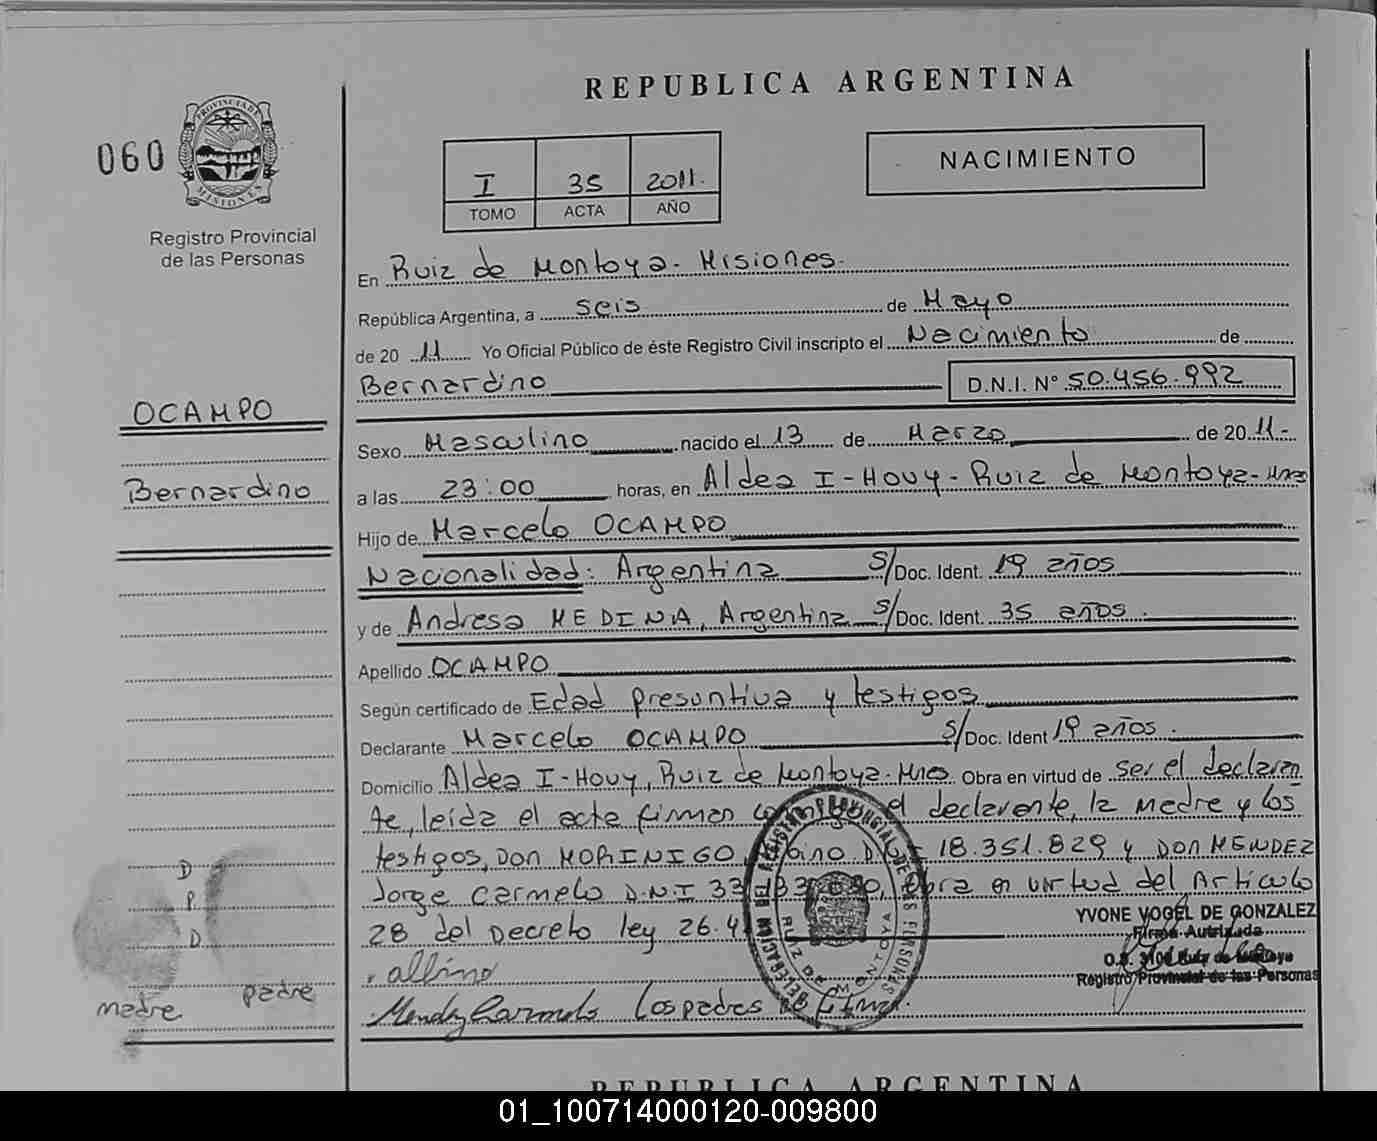 REPUBLICA ARGENTINA
060
PROVINCIA DE MISIONES
Registro Provincial
de las Personas
I 35 2011.
TOMO ACTA AÑO
NACIMIENTO
En Ruiz de Montoya - Misiones.
República Argentina, a seis de Mayo
de 20 11 Yo Oficial Público de éste Registro Civil inscripto el Nacimiento de
Bernardino D.N.I. N° 50.456.992
OCAMPO
Bernardino
Sexo Masculino nacido el 13 de Marzo de 20 11.-
a las 23:00 horas, en Aldea I-Hovy - Ruiz de Montoya - Mnes
Hijo de Marcelo OCAMPO
Nacionalidad: Argentina S/Doc. Ident. 19 años
y de Andresa MEDINA, Argentina S/Doc. Ident. 35 años.
Apellido OCAMPO
Según certificado de Edad presuntiva y testigos
Declarante Marcelo OCAMPO S/Doc. Ident 19 años.
Domicilio Aldea I-Hovy, Ruiz de Montoya - Mnes Obra en virtud de ser el declaran
te, leída el acta firman el declarante, la madre y los
testigos, Don MORINIGO 18.351.829 y DON MENDEZ
Jorge Carmelo D.N.I 33 obra en virtud del Artículo
28 del Decreto ley 26.4
albino
Los padres
D
P
D
madre padre
RUIZ DE MONTOYA
YVONE VOGEL DE GONZALEZ
Firma Autrizada
Registro Provincial de las Personas
REPUBLICA ARGENTINA
01_100714000120-009800